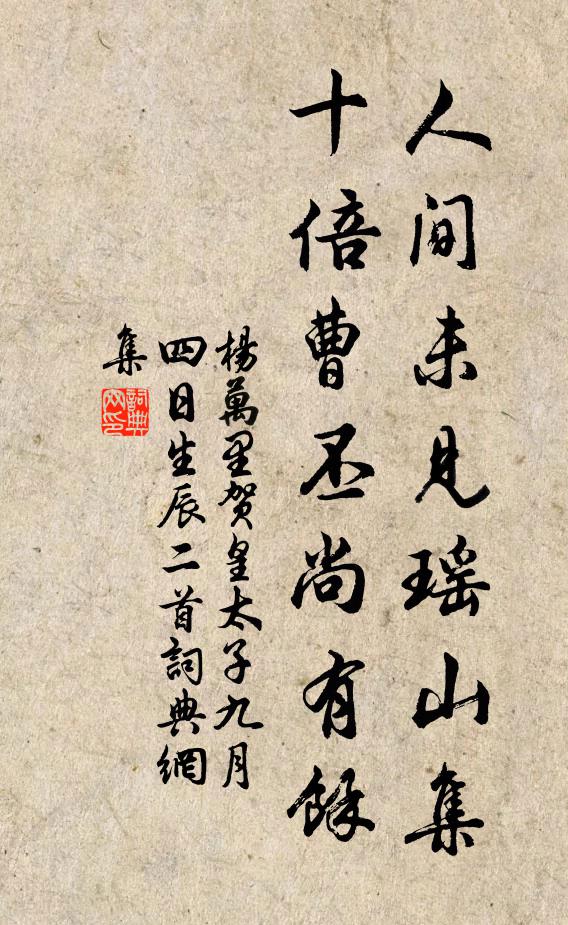 人间未见瑶山集
十倍曹丕尚有餘
楊萬里贺皇太子九月
四日生辰二首詞典網
集
詞典
网印